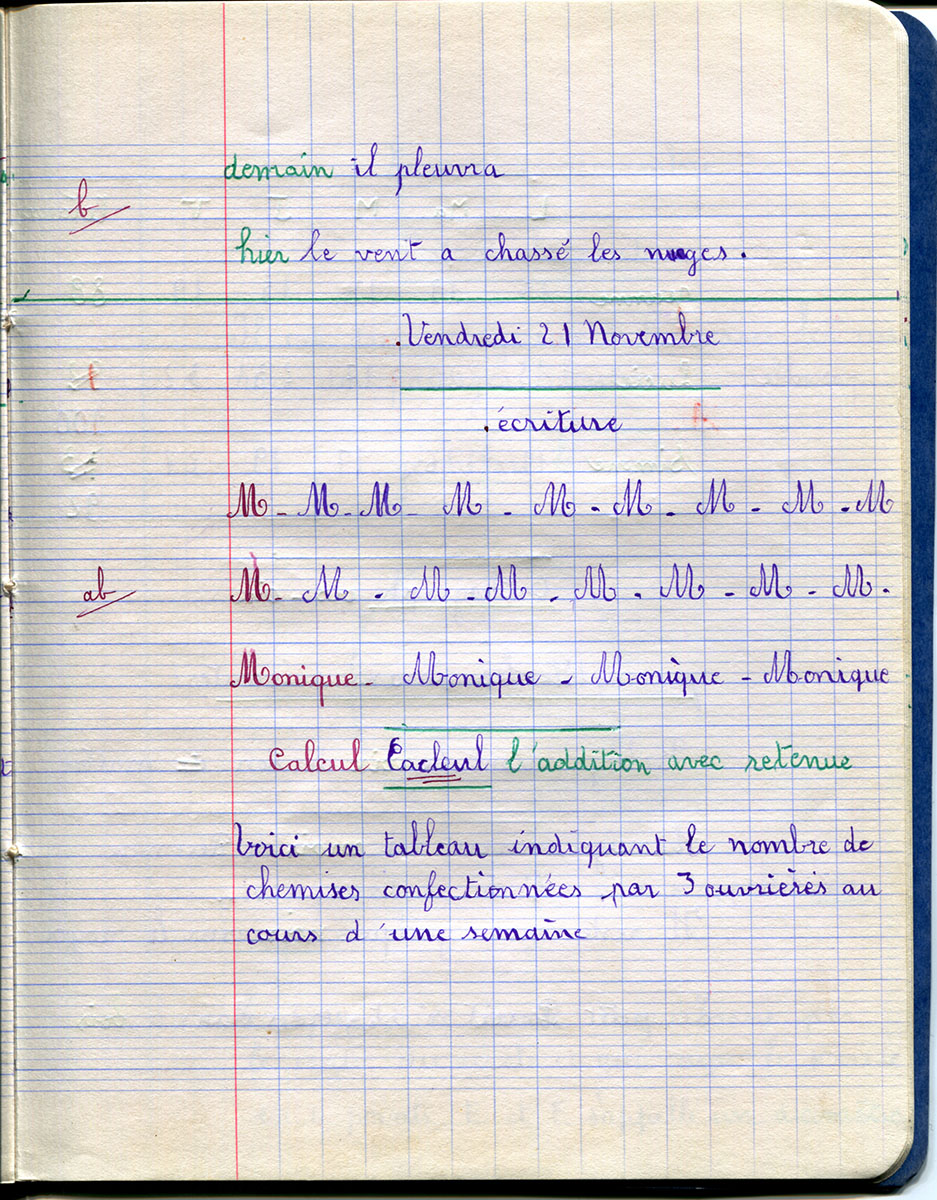 demain il pleuvra
b
hier le vent a chassé les nuages.
.Vendredi 21 Novembre
.écriture
M - M - M - M - M - M - M - M - M
ab
M - M - M - M - M - M - M - M.
Monique - Monique - Monique - Monique
Calcul Cacleul l'addition avec retenue
Voici un tableau indiquant le nombre de
chemises confectionnées par 3 ouvrières au
cours d'une semaine